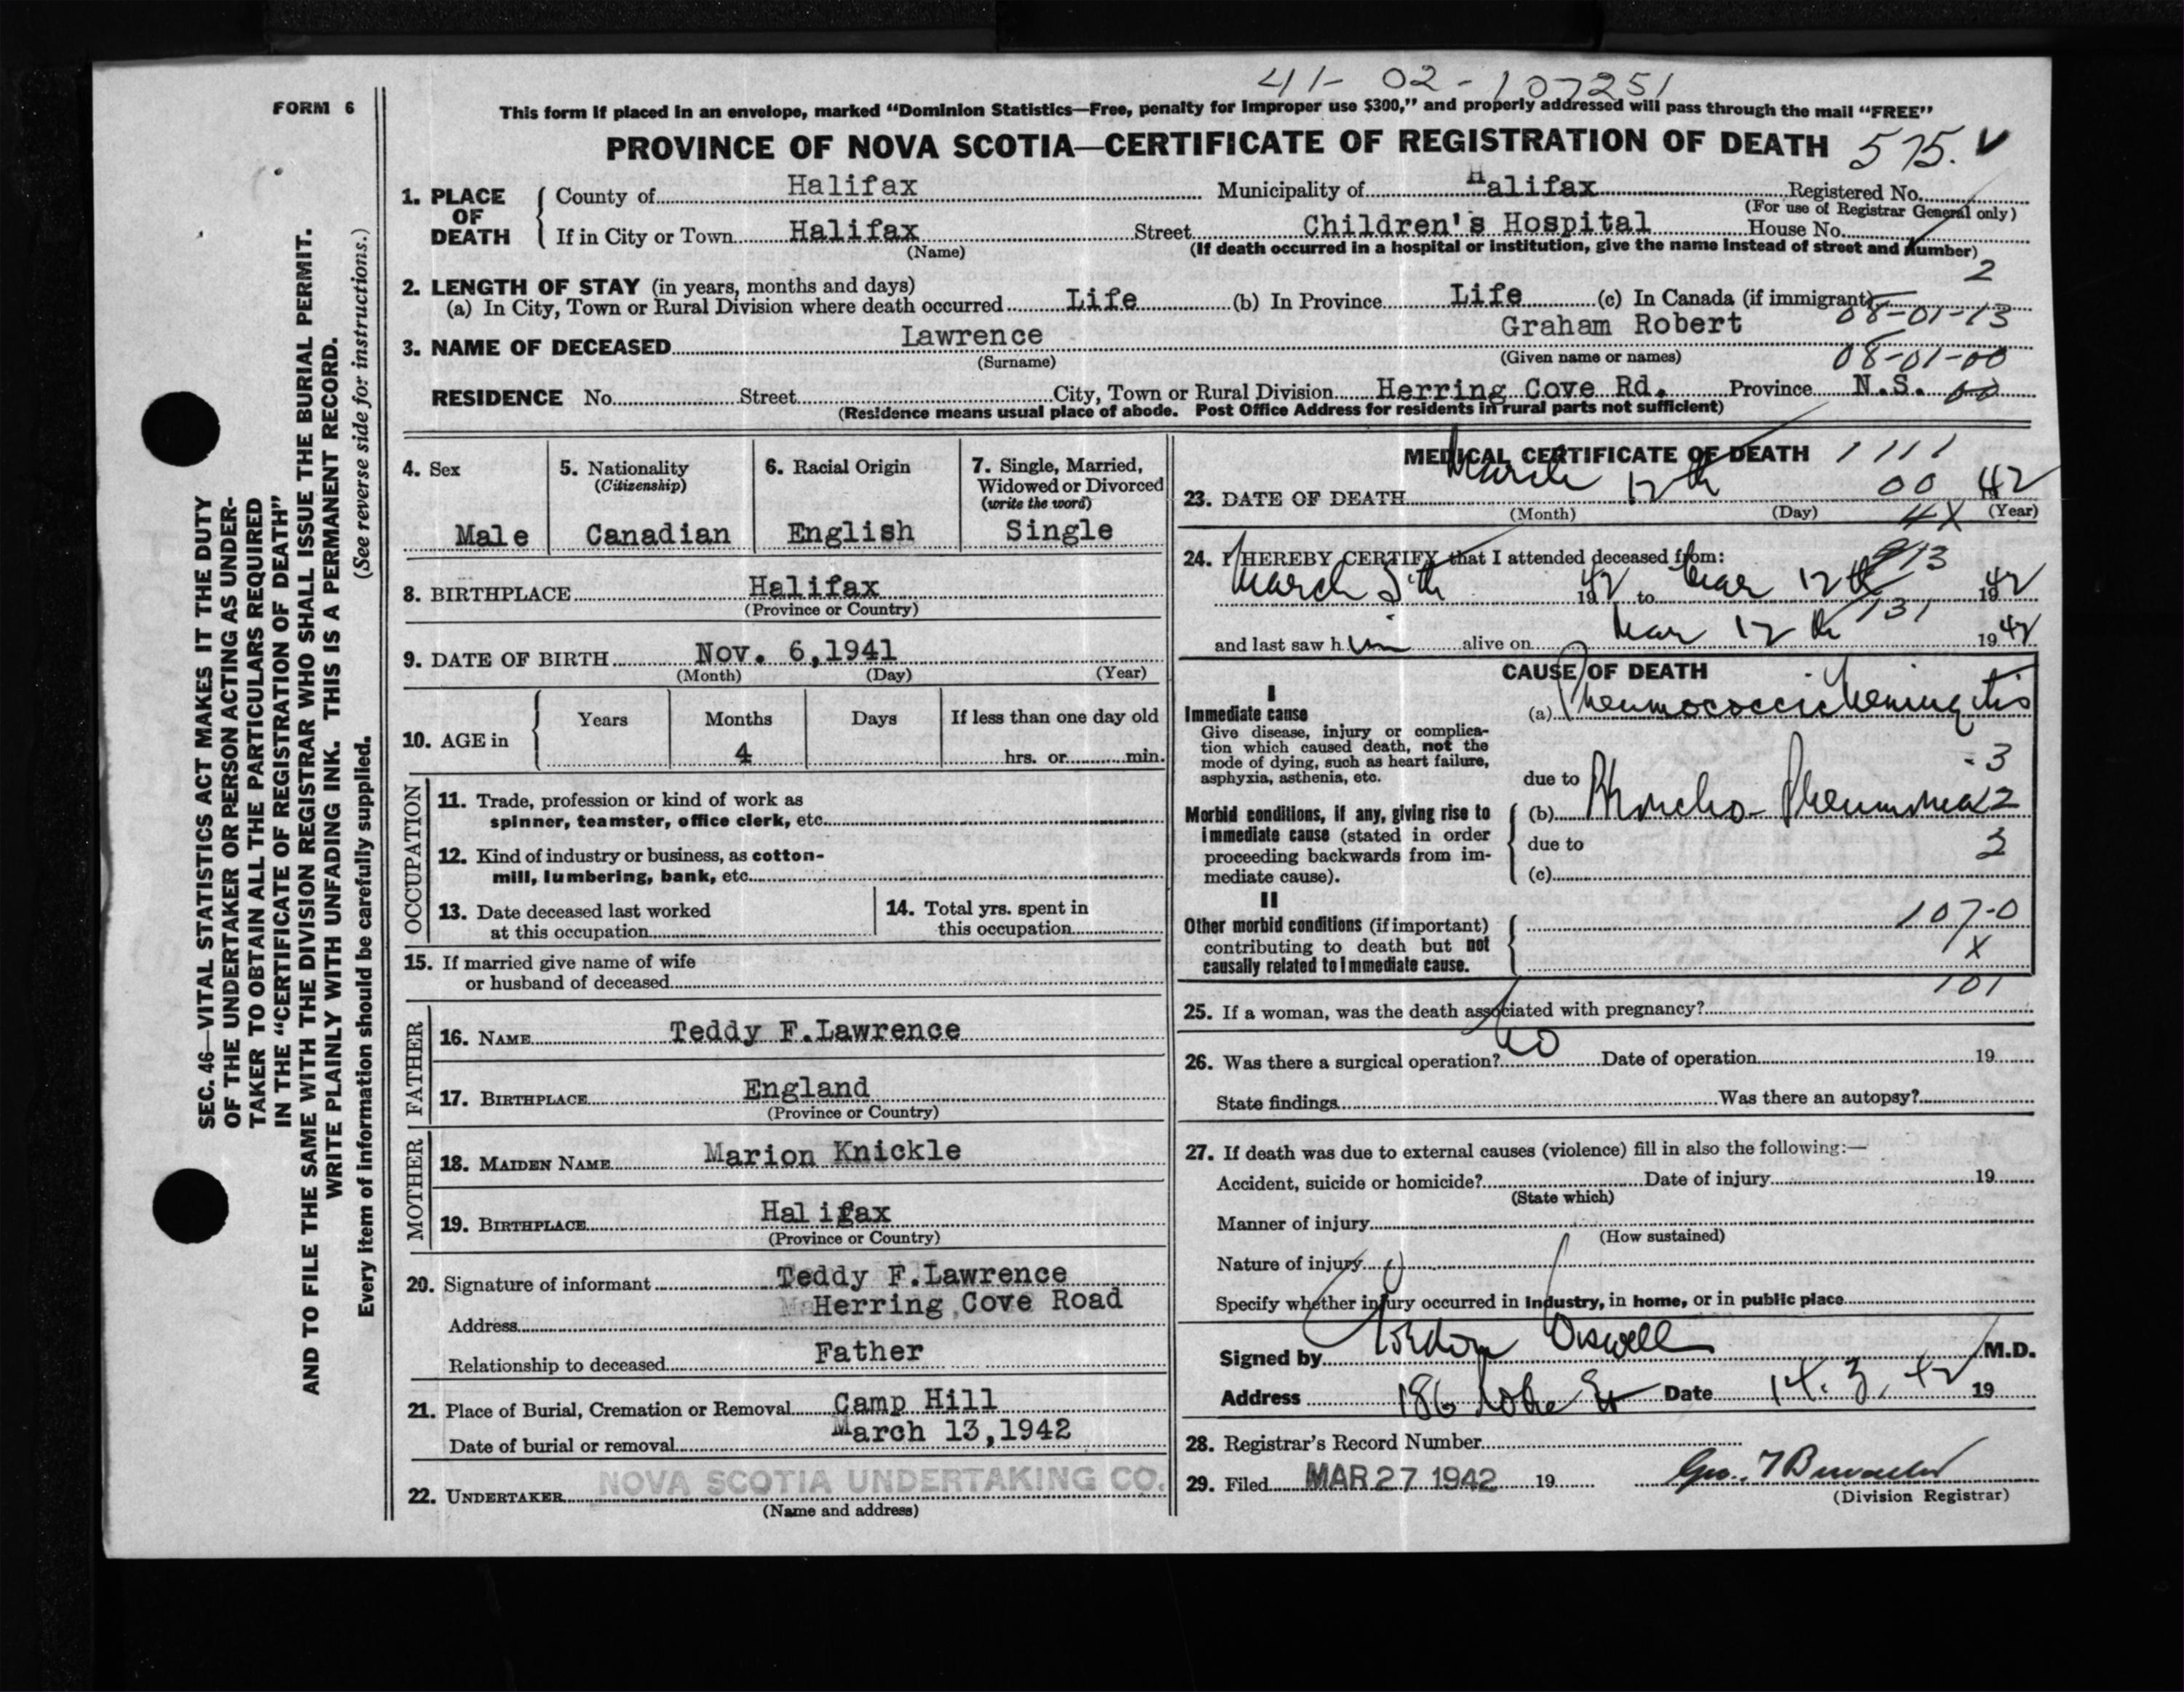 41-02-107251
FORM 6
This form if placed in an envelope, marked “Dominion Statistics—Free, penalty for improper use $300,” and properly addressed will pass through the mail “FREE”
PROVINCE OF NOVA SCOTIA—CERTIFICATE OF REGISTRATION OF DEATH 575. V
SEC. 46—VITAL STATISTICS ACT MAKES IT THE DUTY
OF THE UNDERTAKER OR PERSON ACTING AS UNDER-
TAKER TO OBTAIN ALL THE PARTICULARS REQUIRED
IN THE “CERTIFICATE OF REGISTRATION OF DEATH”
AND TO FILE THE SAME WITH THE DIVISION REGISTRAR WHO SHALL ISSUE THE BURIAL PERMIT.
WRITE PLAINLY WITH UNFADING INK. THIS IS A PERMANENT RECORD.
Every item of information should be carefully supplied. (See reverse side for instructions.)
1. PLACE OF DEATH
County of Halifax Municipality of Halifax Registered No.
(For use of Registrar General only)
If in City or Town Halifax Street Children's Hospital House No.
(Name) (If death occurred in a hospital or institution, give the name instead of street and number)
2
2. LENGTH OF STAY (in years, months and days)
(a) In City, Town or Rural Division where death occurred Life (b) In Province Life (c) In Canada (if immigrant)
08-01-13
3. NAME OF DECEASED Lawrence Graham Robert
(Surname) (Given name or names) 08-01-00
RESIDENCE No. Street City, Town or Rural Division Herring Cove Rd. Province N.S. 00
(Residence means usual place of abode. Post Office Address for residents in rural parts not sufficient)
4. Sex
Male
5. Nationality
(Citizenship)
Canadian
6. Racial Origin
English
7. Single, Married,
Widowed or Divorced
(write the word)
Single
8. BIRTHPLACE Halifax
(Province or Country)
9. DATE OF BIRTH Nov. 6,1941
(Month) (Day) (Year)
10. AGE in
Years Months Days If less than one day old
4 hrs. or min.
OCCUPATION
11. Trade, profession or kind of work as
spinner, teamster, office clerk, etc.
12. Kind of industry or business, as cotton-
mill, lumbering, bank, etc.
13. Date deceased last worked
at this occupation
14. Total yrs. spent in
this occupation
15. If married give name of wife
or husband of deceased
FATHER
16. NAME Teddy F.Lawrence
17. BIRTHPLACE England
(Province or Country)
MOTHER
18. MAIDEN NAME Marion Knickle
19. BIRTHPLACE Halifax
(Province or Country)
20. Signature of informant Teddy F.Lawrence
Herring Cove Road
Address
Relationship to deceased Father
21. Place of Burial, Cremation or Removal Camp Hill
Date of burial or removal March 13,1942
22. UNDERTAKER NOVA SCOTIA UNDERTAKING CO.
(Name and address)
MEDICAL CERTIFICATE OF DEATH 1111
23. DATE OF DEATH March 12th 00 1942
(Month) (Day) 4X (Year)
24. I HEREBY CERTIFY that I attended deceased from:
913
March 5th 1942 to Mar 12th 1942
131
and last saw him alive on Mar 12th 1942
CAUSE OF DEATH
I
Immediate cause
Give disease, injury or complica-
tion which caused death, not the
mode of dying, such as heart failure,
asphyxia, asthenia, etc.
(a) Pneumococcic Meningitis
- 3
due to
Morbid conditions, if any, giving rise to
immediate cause (stated in order
proceeding backwards from im-
mediate cause).
(b) Broncho-Pneumonia 2
due to
3
(c)
II
Other morbid conditions (if important)
contributing to death but not
causally related to immediate cause.
107-0
1X
101
25. If a woman, was the death associated with pregnancy?
26. Was there a surgical operation? No Date of operation 19
State findings Was there an autopsy?
27. If death was due to external causes (violence) fill in also the following:—
Accident, suicide or homicide? Date of injury 19
(State which)
Manner of injury
(How sustained)
Nature of injury
Specify whether injury occurred in industry, in home, or in public place
Signed by Gordon M.D.
Address 186 St Date 14.3.42 19
28. Registrar's Record Number
29. Filed MAR 27 1942 19 Geo.
(Division Registrar)